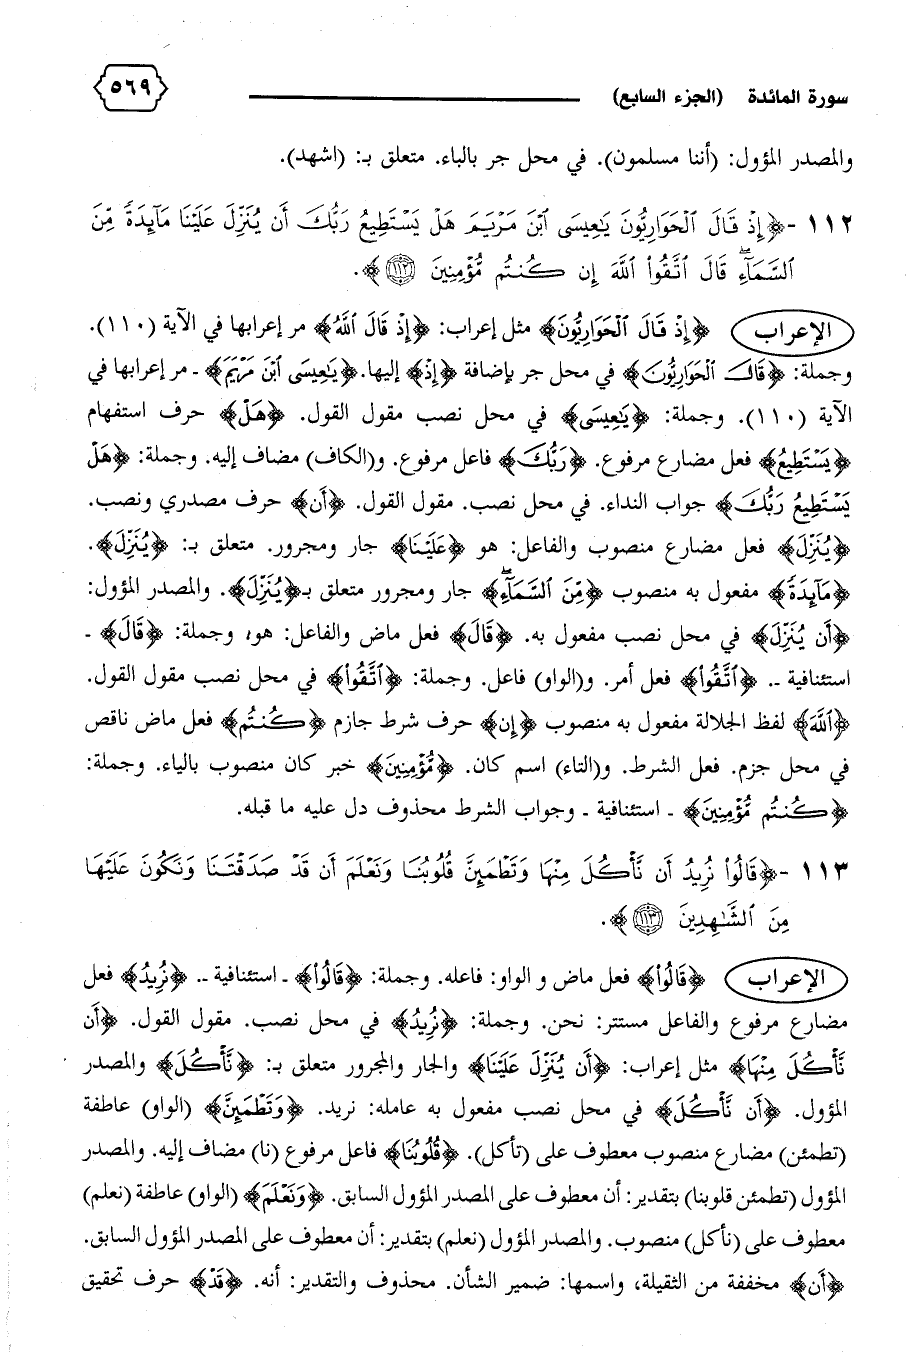 سورة المائدة (الجزء السابع) ٥٦٩
والمصدر المؤول: (أننا مسلمون). في محل جر بالباء. متعلق بـ: (اشهد).
١١٢ - ﴿إِذْ قَالَ ٱلْحَوَارِيُّونَ يَٰعِيسَى ٱبْنَ مَرْيَمَ هَلْ يَسْتَطِيعُ رَبُّكَ أَن يُنَزِّلَ عَلَيْنَا مَآئِدَةً مِّنَ
ٱلسَّمَآءِۖ قَالَ ٱتَّقُوا۟ ٱللَّهَ إِن كُنتُم مُّؤْمِنِينَ ١١٢﴾.
الإعراب ﴿إِذْ قَالَ ٱلْحَوَارِيُّونَ﴾ مثل إعراب: ﴿إِذْ قَالَ ٱللَّهُ﴾ مر إعرابها في الآية (١١٠).
وجملة: ﴿قَالَ ٱلْحَوَارِيُّونَ﴾ في محل جر بإضافة ﴿إِذْ﴾ إليها. ﴿يَٰعِيسَى ٱبْنَ مَرْيَمَ﴾ ـ مر إعرابها في
الآية (١١٠). وجملة: ﴿يَٰعِيسَى﴾ في محل نصب مقول القول. ﴿هَلْ﴾ حرف استفهام
﴿يَسْتَطِيعُ﴾ فعل مضارع مرفوع. ﴿رَبُّكَ﴾ فاعل مرفوع. و(الكاف) مضاف إليه. وجملة: ﴿هَلْ
يَسْتَطِيعُ رَبُّكَ﴾ جواب النداء. في محل نصب. مقول القول. ﴿أَن﴾ حرف مصدري ونصب.
﴿يُنَزِّلَ﴾ فعل مضارع منصوب والفاعل: هو ﴿عَلَيْنَا﴾ جار ومجرور. متعلق بـ: ﴿يُنَزِّلَ﴾.
﴿مَآئِدَةً﴾ مفعول به منصوب ﴿مِّنَ ٱلسَّمَآءِۖ﴾ جار ومجرور متعلق بـ﴿يُنَزِّلَ﴾. والمصدر المؤول:
﴿أَن يُنَزِّلَ﴾ في محل نصب مفعول به. ﴿قَالَ﴾ فعل ماض والفاعل: هو، وجملة: ﴿قَالَ﴾ ـ
استئنافية ـ. ﴿ٱتَّقُوا۟﴾ فعل أمر. و(الواو) فاعل. وجملة: ﴿ٱتَّقُوا۟﴾ في محل نصب مقول القول.
﴿ٱللَّهَ﴾ لفظ الجلالة مفعول به منصوب ﴿إِن﴾ حرف شرط جازم ﴿كُنتُم﴾ فعل ماض ناقص
في محل جزم. فعل الشرط. و(التاء) اسم كان. ﴿مُّؤْمِنِينَ﴾ خبر كان منصوب بالياء. وجملة:
﴿كُنتُم مُّؤْمِنِينَ﴾ ـ استئنافية ـ وجواب الشرط محذوف دل عليه ما قبله.
١١٣ - ﴿قَالُوا۟ نُرِيدُ أَن نَّأْكُلَ مِنْهَا وَتَطْمَئِنَّ قُلُوبُنَا وَنَعْلَمَ أَن قَدْ صَدَقْتَنَا وَنَكُونَ عَلَيْهَا
مِنَ ٱلشَّٰهِدِينَ ١١٣﴾.
الإعراب ﴿قَالُوا۟﴾ فعل ماض و الواو: فاعله. وجملة: ﴿قَالُوا۟﴾ ـ استئنافية ـ. ﴿نُرِيدُ﴾ فعل
مضارع مرفوع والفاعل مستتر: نحن. وجملة: ﴿نُرِيدُ﴾ في محل نصب. مقول القول. ﴿أَن
نَّأْكُلَ مِنْهَا﴾ مثل إعراب: ﴿أَن يُنَزِّلَ عَلَيْنَا﴾ والجار والمجرور متعلق بـ: ﴿نَّأْكُلَ﴾ والمصدر
المؤول. ﴿أَن نَّأْكُلَ﴾ في محل نصب مفعول به عامله: نريد. ﴿وَتَطْمَئِنَّ﴾ (الواو) عاطفة
(تطمئن) مضارع منصوب معطوف على (تأكل). ﴿قُلُوبُنَا﴾ فاعل مرفوع (نا) مضاف إليه. والمصدر
المؤول (تطمئن قلوبنا) بتقدير: أن معطوف على المصدر المؤول السابق. ﴿وَنَعْلَمَ﴾ (الواو) عاطفة (نعلم)
معطوف على (نأكل) منصوب. والمصدر المؤول (نعلم) بتقدير: أن معطوف على المصدر المؤول السابق.
﴿أَن﴾ مخففة من الثقيلة، واسمها: ضمير الشأن. محذوف والتقدير: أنه. ﴿قَدْ﴾ حرف تحقيق